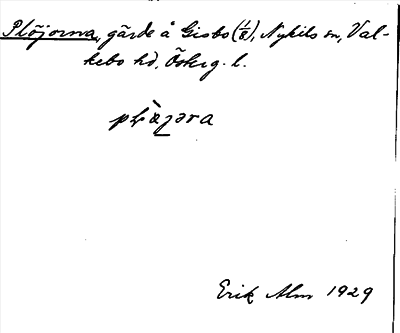 Plöjorna, gärde å Gisbo (1/8), Nykils sn, Val-
kebo hd, Öskrg. l.
Erik Alm 1929